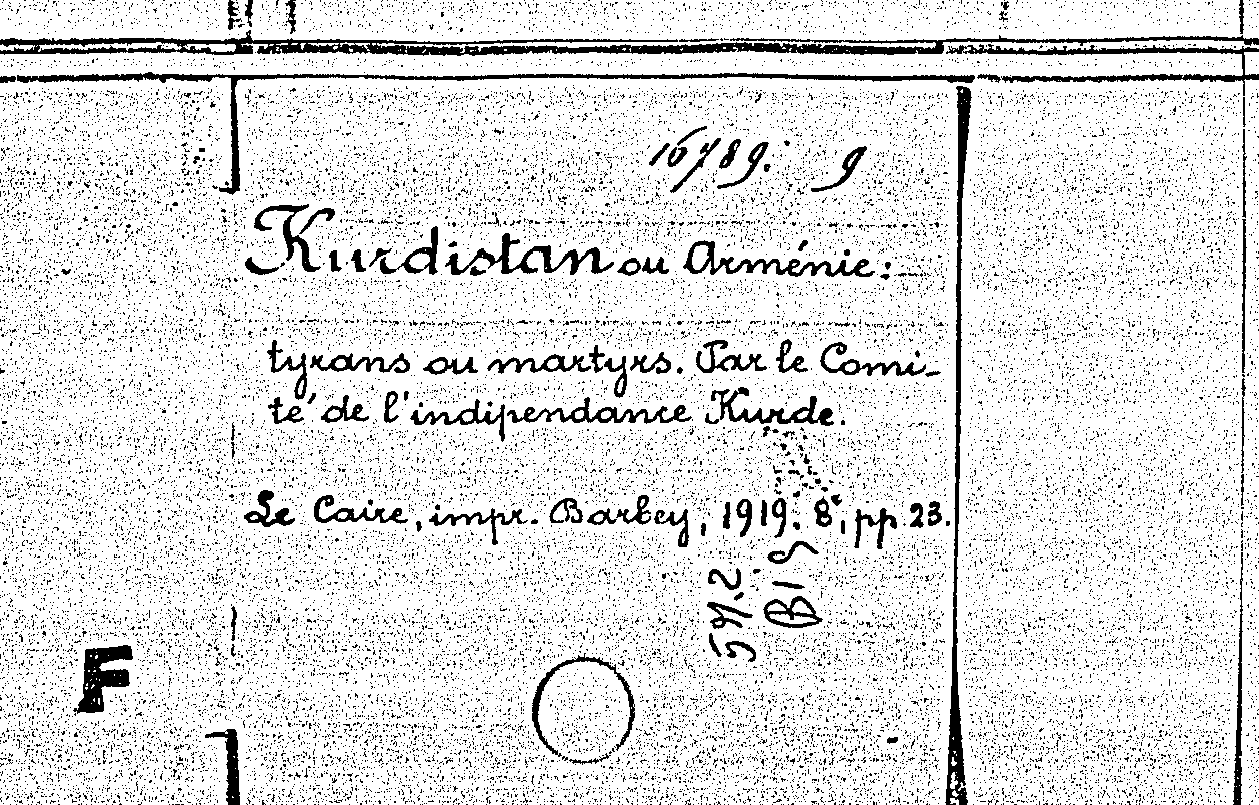 16789. 9
Kurdistan ou Arménie:
tyrans ou martyrs. Par le Comi-
té de l'indipendance Kurde.
Le Caire, impr. Barbey, 1919. 8°, pp 23.
F